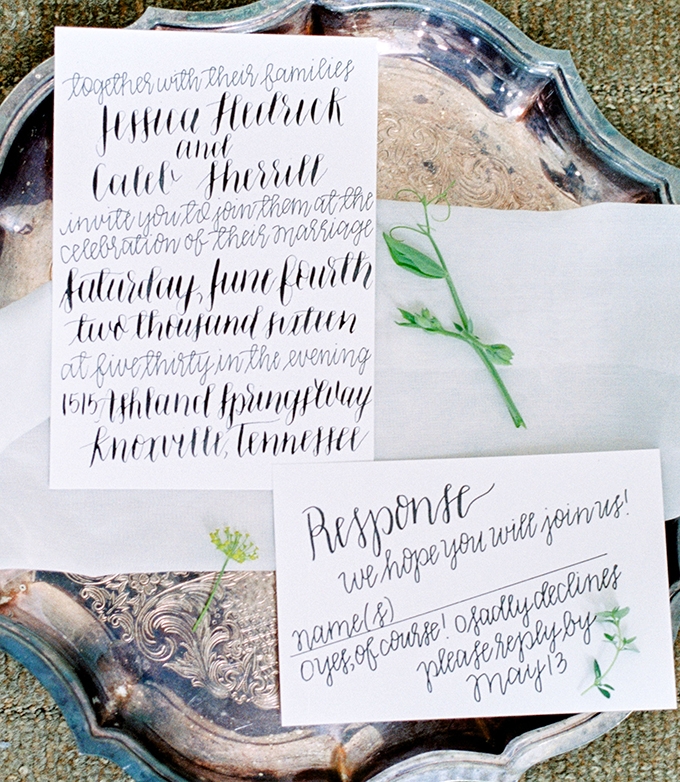 together with their families
Jessica Hedrick
and
Caleb Sherrill
invite you to join them at the
celebration of their marriage
Saturday, June fourth
two thousand sixteen
at five thirty in the evening
1515 Ashland Springs Way
Knoxville, Tennessee
Response
we hope you will join us!
name(s)
O yes, of course! O sadly declines
please reply by
May 13